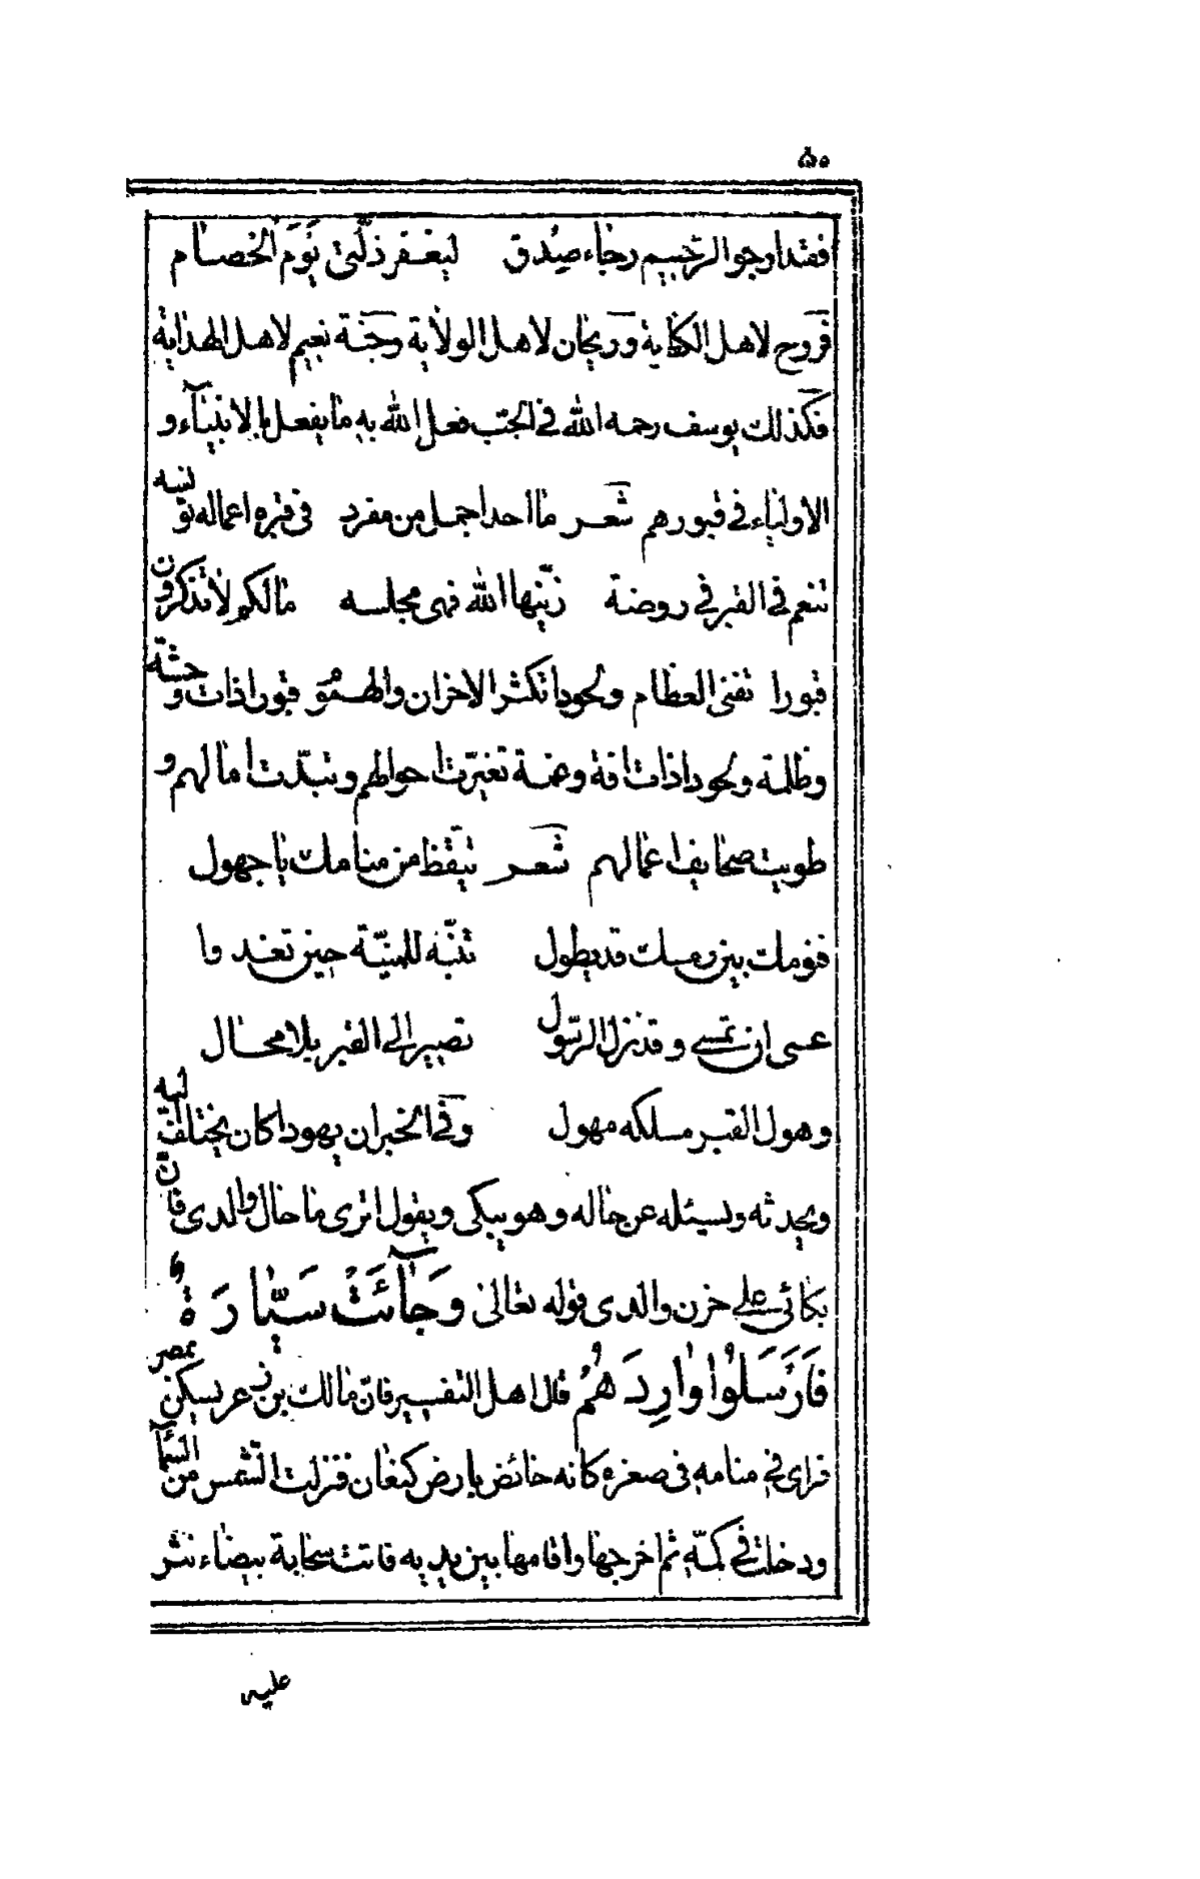 ۵۰
فقد ارجو الرّحيم رجاء صدق ليغفر زلّتى يوم الخصام
فروح لاهل الكفاية وريحان لاهل الولاية وجنة نعيم لاهل الهداية
فكذلك يوسف رحمه الله فى الجب فعل الله به ما يفعل بالانبيآء و
الاولياء فى قبورهم شعر ما احد اجمل من مفرد فى قبره اعماله تونسه
تنعم فى القبر فى روضة زيّنها الله فهى مجلسه مالكم لا تذكرون
قبورا تفنى العظام ولحودا تكثر الاحزان والهموم قبورا ذات وحشة
وظلمة ولحودا ذات افة وغمة تغيرت احوالهم وتبدّلت امالهم و
طويت صحايف اعمالهم شعر تيقظ من منامك يا جهول
فنومك بين رمسك قد يطول تنبّه للمنيّة حين تغدوا
عسى ان تمسى وقد نزل الرّسول تصير الى القبر بلا محال
وهول القبر مسلكه مهول وفى الخبر ان يهودا كان يختلف اليه
ويحدثه ويسئله عن حاله وهو يبكى ويقول اترى ما حال والدى فانّ
بكائى على حزن والدى قوله تعالى وَجَآئَتْ سَيَّارَةٌ
فَاَرْسَلُوا وٰارِدَهُمْ قال اهل التفسير فانّ مالك بن زعر يسكن بمصر
فراى فى منامه فى صغره كانه خائض بارض كنعان فنزلت الشمس من السّمآ
ودخلت فى كمّه ثم اخرجها واقامها بين يديه فاتت سحابة بيضاء نثر
عليه